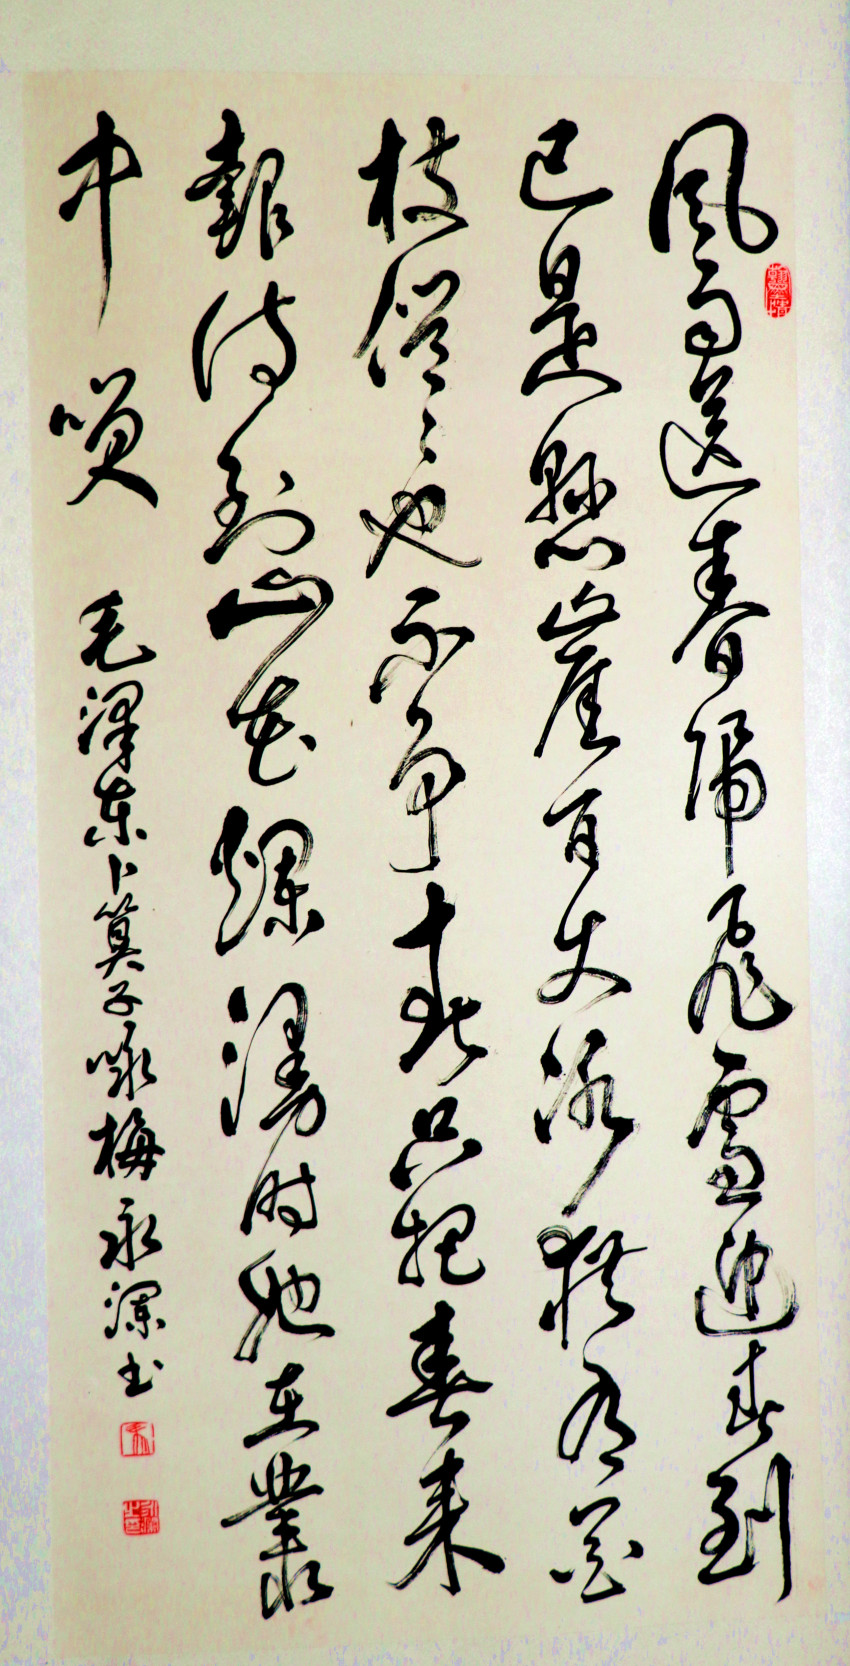 風雨送春歸飛雪迎春到
已是懸崖百丈冰猶有花
枝俏〻也不争春只把春来
報待到山花爛漫时她在叢
中笑 毛澤東卜算子咏梅 永瀾书